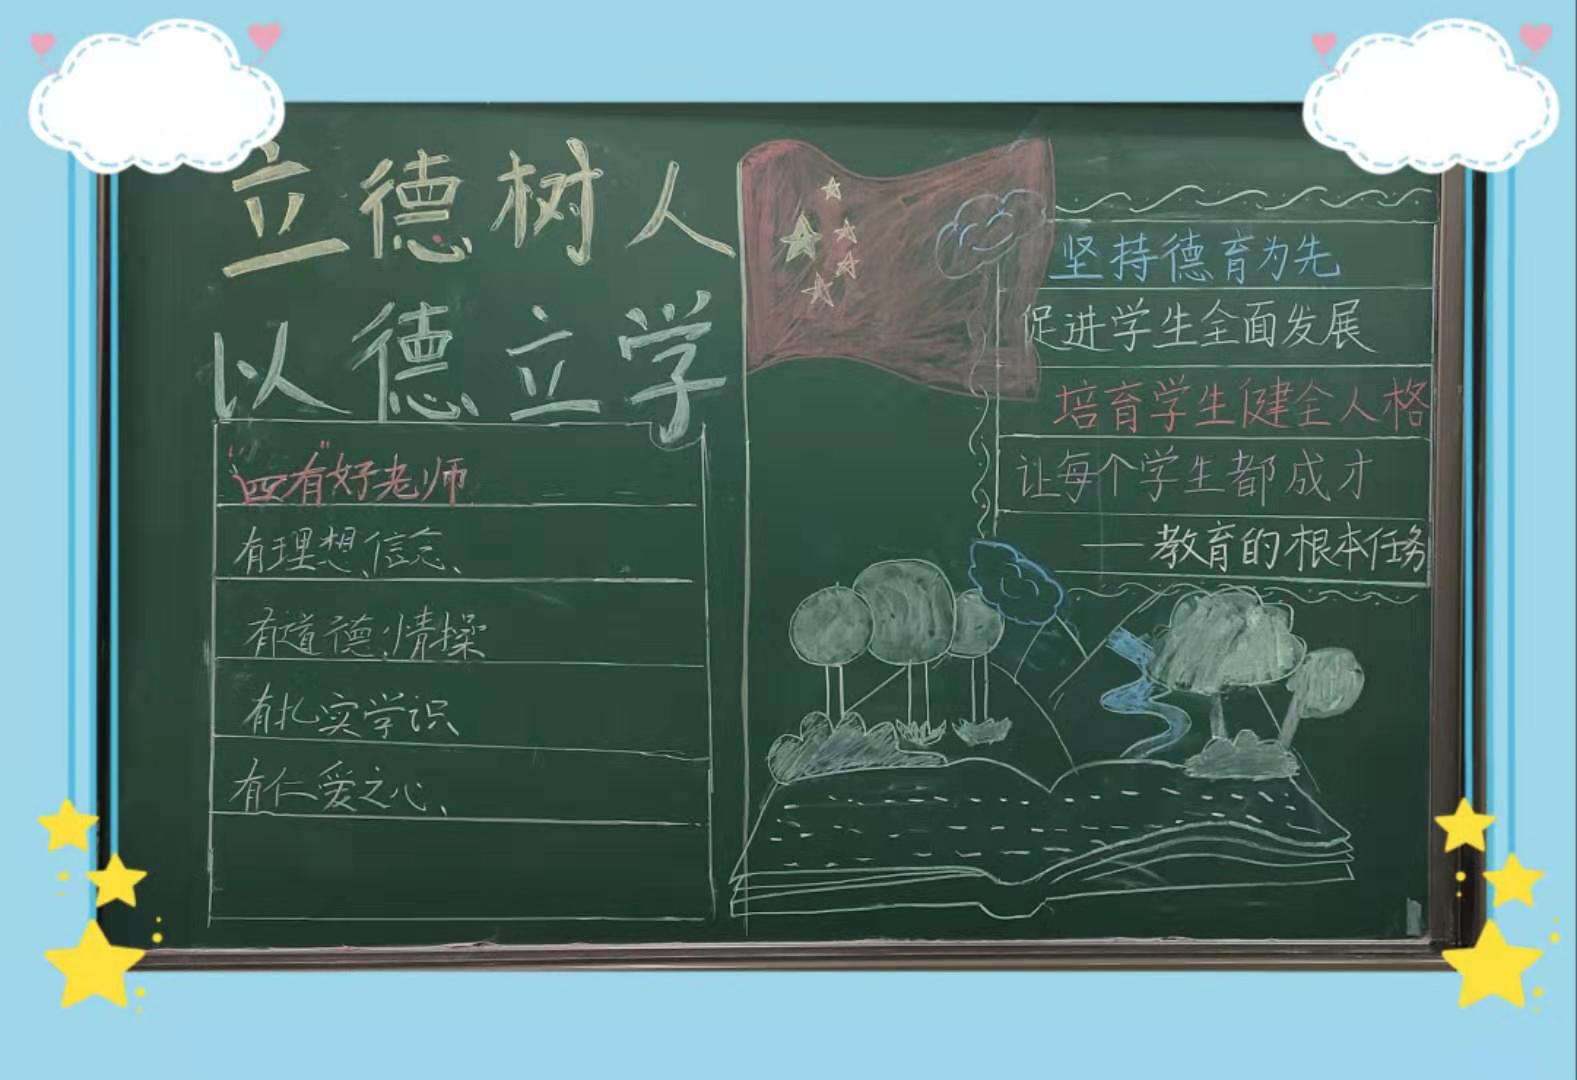 立德树人
以德立学
“四有”好老师
有理想、信念、
有道德、情操
有扎实学识
有仁爱之心、
坚持德育为先
促进学生全面发展
培育学生健全人格
让每个学生都成才
——教育的根本任务